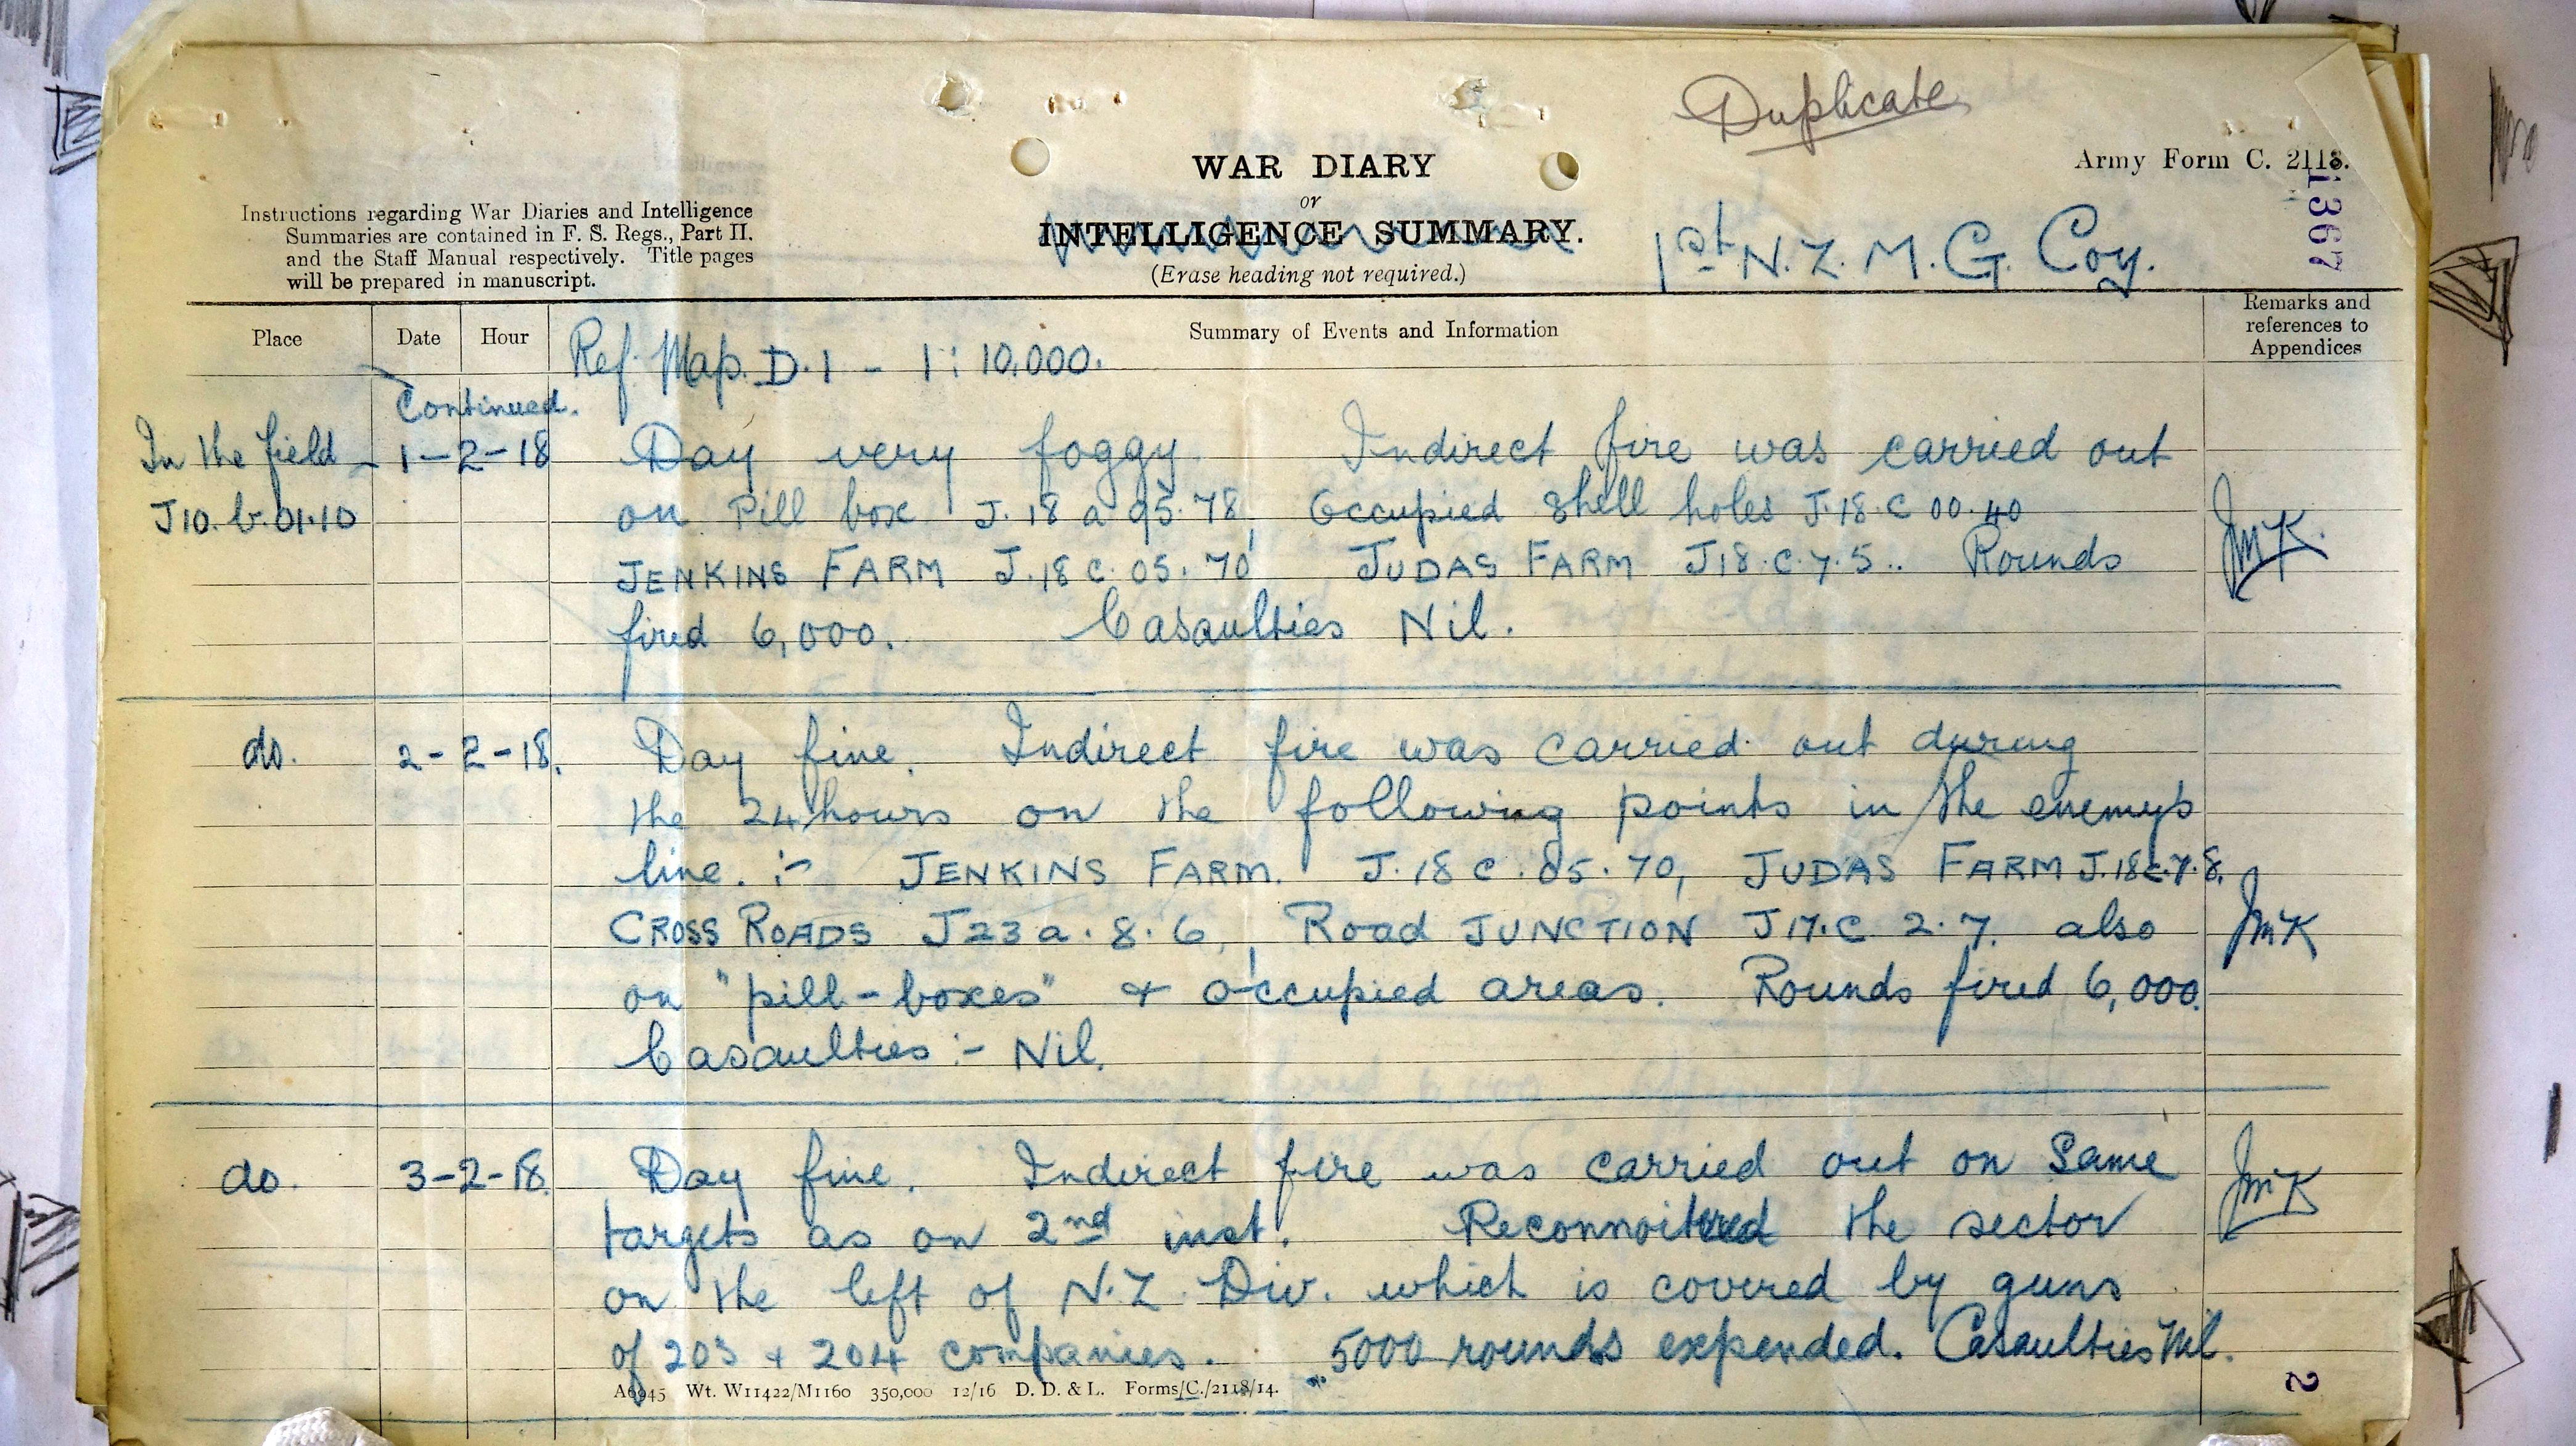 Duplicate
WAR DIARY
or
INTELLIGENCE SUMMARY.
(Erase heading not required.)
Army Form C. 2118.
1367
Instructions regarding War Diaries and Intelligence
Summaries are contained in F. S. Regs., Part II.
and the Staff Manual respectively. Title pages
will be prepared in manuscript.
1st N.Z. M.G. Coy.
Place
Date
Hour
Summary of Events and Information
Remarks and
references to
Appendices
Ref. Map. D.1 - 1:10.000.
Continued.
In the field
J10.b.01.10
1-2-18
Day very foggy. Indirect fire was carried out
on Pill box J.18 a 95.78, Occupied shell holes J.18.C 00.40
JENKINS FARM J.18 C.05.70 JUDAS FARM J18.C.7.5.. Rounds
fired 6,000. Casaulties Nil.
JMK.
do. 2-2-18.
Day fine. Indirect fire was carried out during
the 24 hours on the following points in the enemys
line. :- JENKINS FARM. J.18 C.05.70, JUDAS FARM J.18c.7.8.
CROSS ROADS J23 a.8.6, Road JUNCTION J17.C 2.7. also
on "pill-boxes" + occupied areas. Rounds fired 6,000.
Casaulties :- Nil.
JMK
do. 3-2-18.
Day fine. Indirect fire was carried out on Same
targets as on 2nd inst. Reconnoitred the sector
on the left of N.Z. Div. which is covered by guns
of 203 + 204 companies. 5000 rounds expended. Casaulties Nil.
JMK
A6945 Wt. W11422/M1160 350,000 12/16 D. D. & L. Forms/C./2118/14.
2